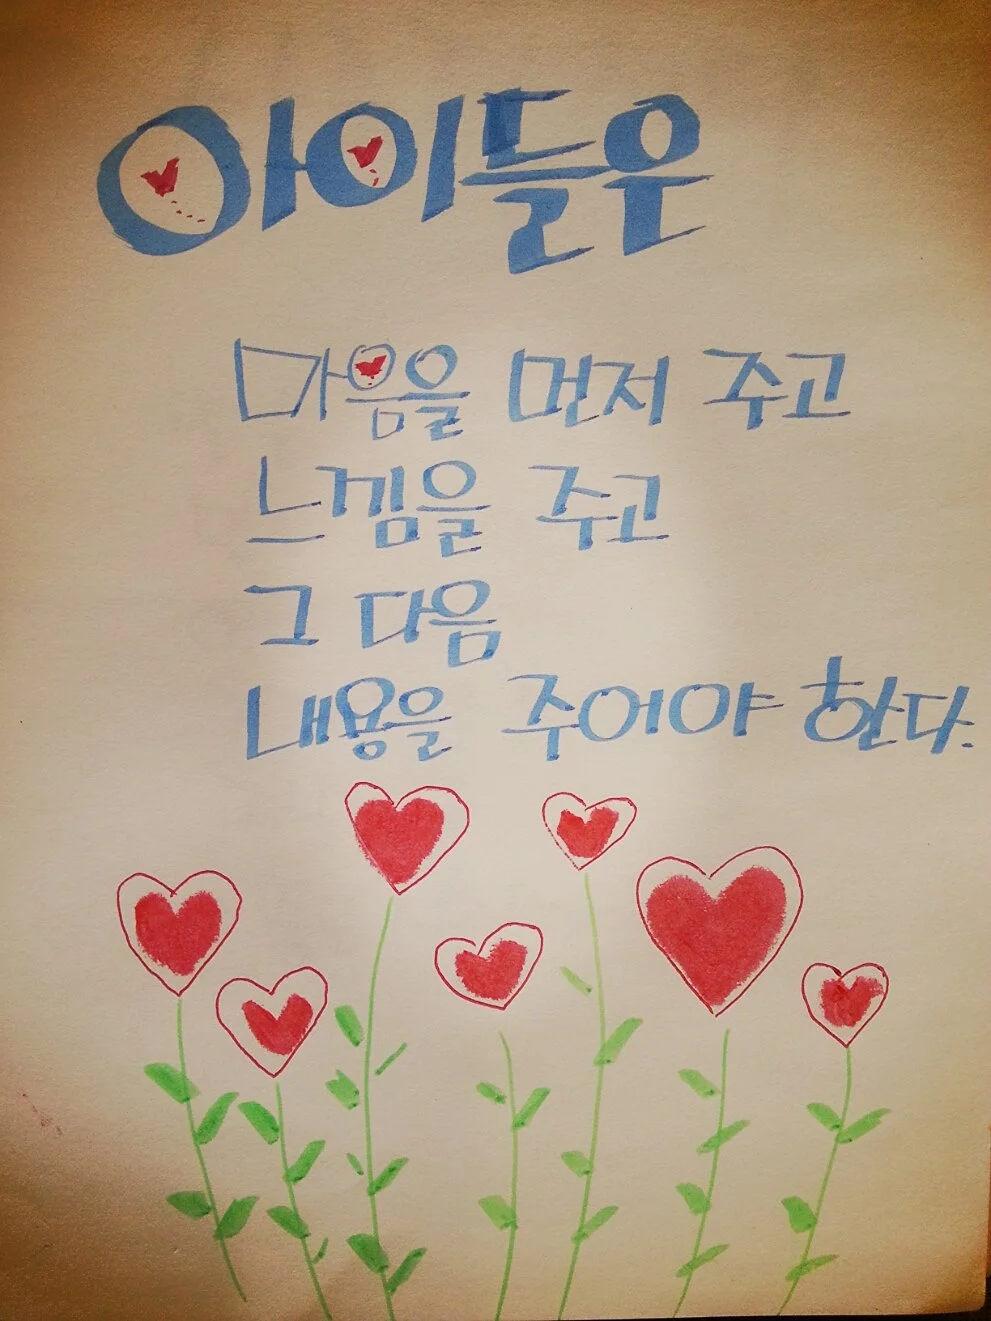 아이들은
마음을 먼저 주고
느낌을 주고
그 다음
내용을 주어야 한다.